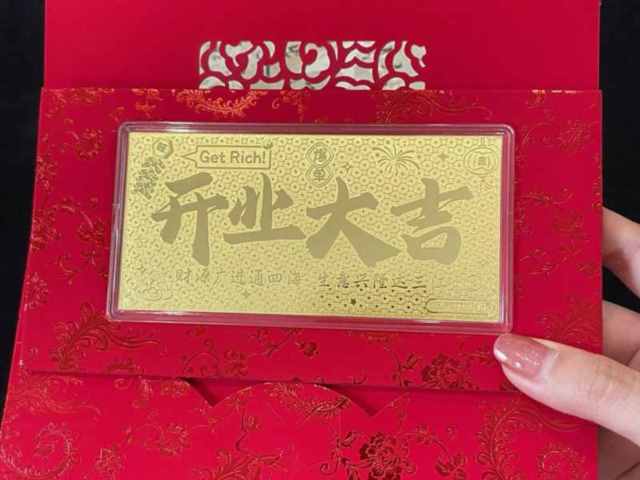 Get Rich!
爆单
开业大吉
财源广进通四海 生意兴隆达三江